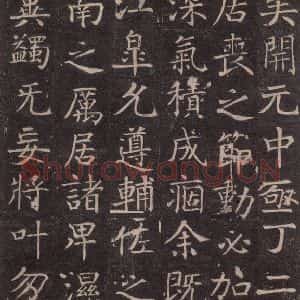 矣開元中亟丁二
居喪之節動必加
深氣積成痼余既
江皐允遵輔佐之
南之厲居諸卑濕
冀蠲无妄將叶勿
Shufawang.CN